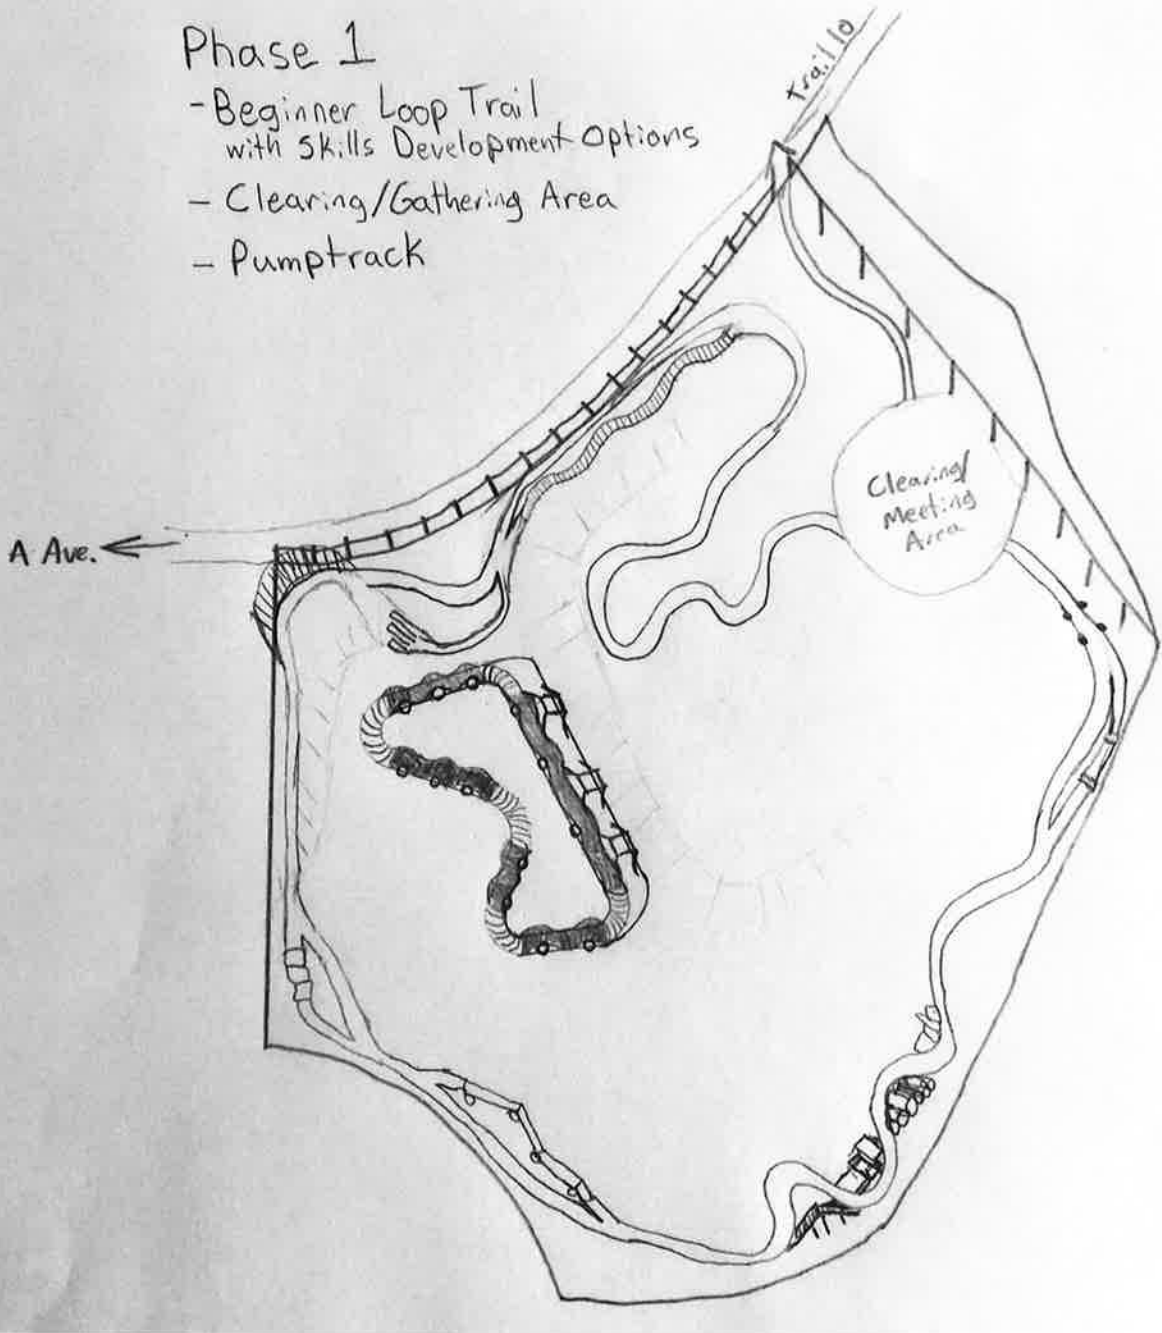 Phase 1
- Beginner Loop Trail
with Skills Development Options
- Clearing/Gathering Area
- Pumptrack
Trail 10
A Ave.
Clearing/
Meeting
Area